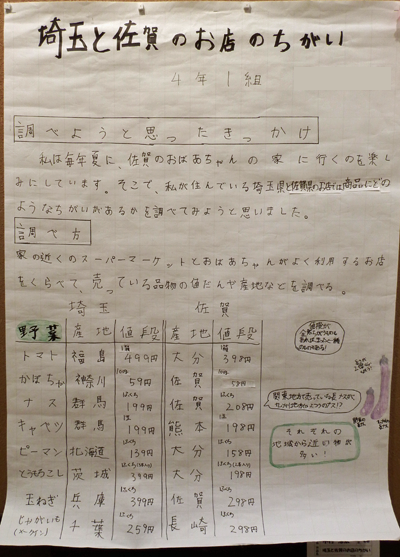 埼玉と佐賀のお店のちがい
4年1組
調べようと思ったきっかけ
私は毎年夏に、佐賀のおばあちゃんの家に行くのを楽し
みにしています。そこで、私が住んでいる埼玉県と佐賀県のお店では商品にどの
ようなちがいがあるかを調べてみようと思いました。
調べ方
家の近くのスーパーマーケットとおばあちゃんがよく利用するお店
をくらべて、売っている品物の値だんや産地などを調べる。
埼玉 佐賀
野菜 産地 値段 産地 値段
トマト 福島 499円 大分 398円
かぼちゃ 神奈川 59円 佐賀 58円
ナス 群馬 199円 佐賀 208円
キャベツ 群馬 199円 熊本 198円
ピーマン 北海道 139円 大分 158円
とうもろこし 茨城 399円 大分 198円
玉ねぎ 兵庫 399円 佐賀 298円
じゃがいも 千葉 259円 長崎 298円
それぞれの
地域から近い物が
多い!